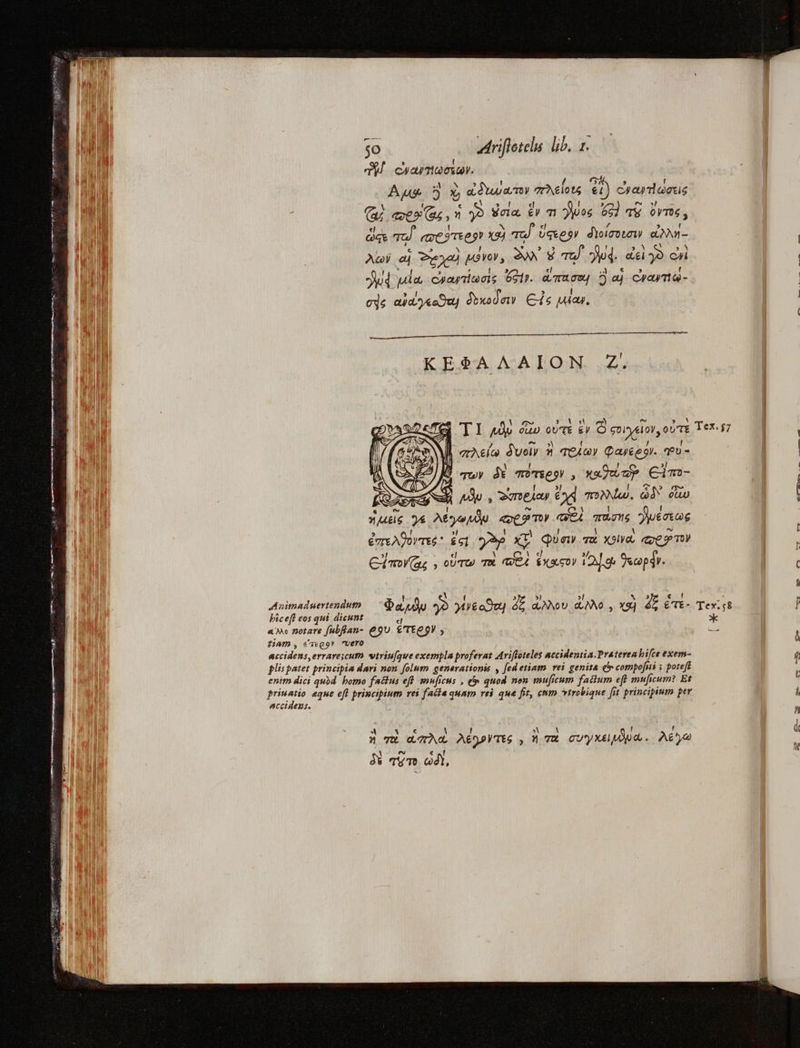 50 Aristotelis lib. 1.
τῶν ἐναντιώσεων.
Ἅμα δὲ καὶ ἀδύνατον πλείους εἶναι ἐναντιώσεις
τὰς πρώτας, ἡ γὰρ οὐσία ἕν τι γένος ἐστὶ τοῦ ὄντος,
ὥστε τῷ πρότερον καὶ τῷ ὕστερον διοίσουσιν ἀλλή-
λων αἱ ἀρχαὶ μόνον, ἀλλ' οὐ τῷ γένει. ἀεὶ γὰρ ἐν ἑνὶ
γένει μία ἐναντίωσίς ἐστιν. ἅπασαι δὲ αἱ ἐναντιώ-
σεις ἀνάγεσθαι δοκοῦσιν εἰς μίαν.
ΚΕΦΑΛΑΙΟΝ Ζ΄.
ΤΙ μὲν οὖν οὔτε ἓν τὸ στοιχεῖον, οὔτε Tex. 57
πλείω δυοῖν ἢ τριῶν φανερόν. τού-
των δὲ πότερον, καθάπερ εἴπο-
μεν, ἀπορίαν ἔχει πολλήν. ὧδ' οὖν
ἡμεῖς γε λέγωμεν πρῶτον περὶ πάσης γενέσεως
ἐπελθόντες· ἔστι γὰρ κατὰ φύσιν τὰ κοινὰ πρῶτον
εἰπόντας, οὕτω τὰ περὶ ἕκαστον ἴδια θεωρεῖν.
Animaduertendum Φαμὲν γὰρ γίνεσθαι ἐξ ἄλλου ἄλλο, καὶ ἐξ ἑτέ- Tex. 58
hîc est eos qui dicunt *
ἄλλο notare substan- ρου ἕτερον,
tiam, ἕτερον vero
accidens, errare; cum vtriusque exempla proferat Aristoteles accidentia. Præterea hisce exem-
plis patet principia dari non solum generationis, sed etiam rei genitæ & compositi; potest
enim dici quòd homo factus est musicus, & quod non musicum factum est musicum? Et
priuatio æque est principium rei factæ quam rei quæ fit, cum vtrobique fit principium per
accidens.
ἢ τὰ ἁπλᾶ λέγοντες, ἢ τὰ συγκείμενα. λέγω
δὲ τοῦτο ὡδί,